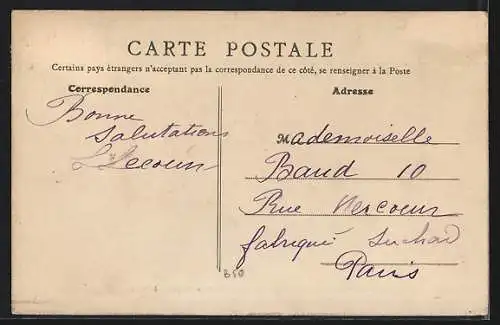 CARTE POSTALE
Certains pays étrangers n'acceptant pas la correspondance de ce côté, se renseigner à la Poste
Correspondance
Adresse
Bonne
Salutations
Mademoiselle
Baud 10
Rue Mercoeur
fabrique Suchard
Paris
350